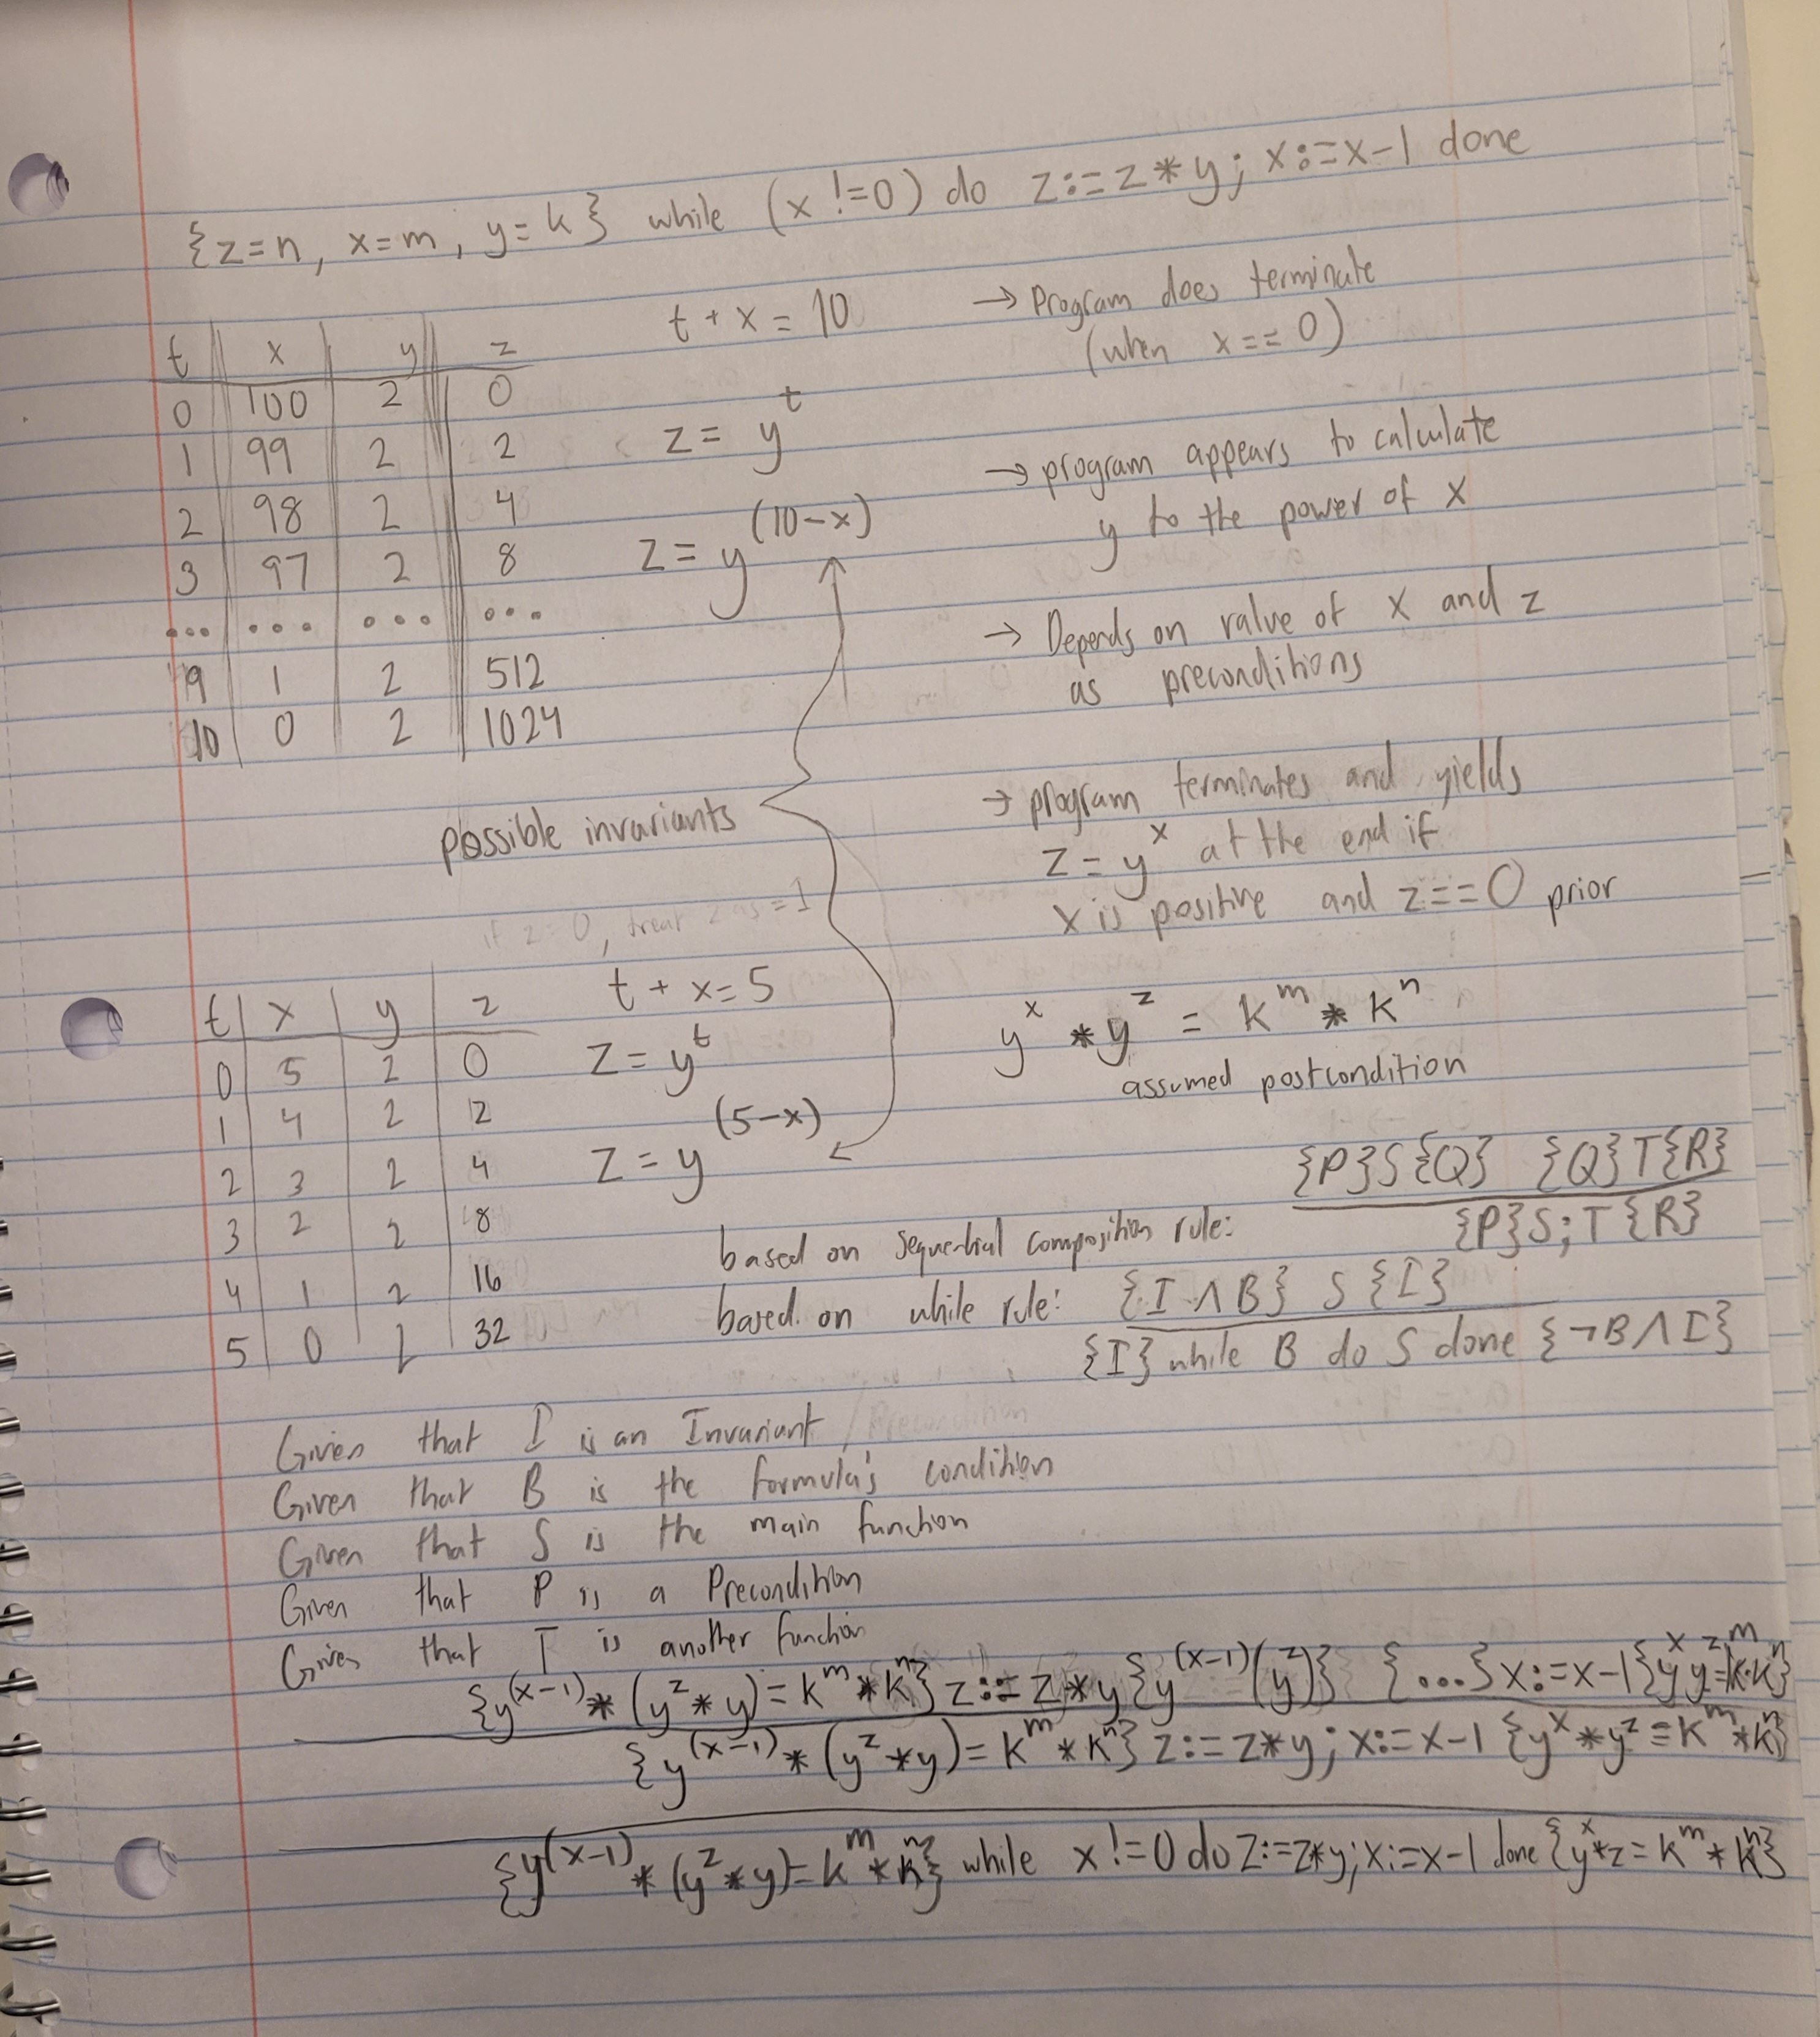 {z=n, x=m, y=k} while (x !=0) do z:=z*y; x:=x-1 done
t x y z
0 100 2 0
1 99 2 2
2 98 2 4
3 97 2 8
... ... ... ...
9 1 2 512
10 0 2 1024
t + x = 10
z = y^t
z = y^(10-x)
→ Program does terminate
(when x==0)
→ program appears to calculate
y to the power of x
→ Depends on value of x and z
as preconditions
→ program terminates and yields
z = y^x at the end if
x is positive and z==0 prior
possible invariants
if z=0, treat z as =1
t x y z
0 5 2 0
1 4 2 2
2 3 2 4
3 2 2 8
4 1 2 16
5 0 2 32
t + x = 5
z = y^t
z = y^(5-x)
y^x * y^z = k^m * k^n
assumed postcondition
{P}S{Q} {Q}T{R}
based on sequential composition rule: {P}S;T{R}
based on while rule: {I ∧ B} S {I}
{I} while B do S done {¬B ∧ I}
Given that I is an Invariant / Precondition
Given that B is the formula's condition
Given that S is the main function
Given that P is a Precondition
Given that T is another function
{y^(x-1) * (y^z * y) = k^m * k^n} z := z * y {y^(x-1) (y^z)} {...} x:=x-1 {y^x y^z = k^m · k^n}
{y^(x-1) * (y^z * y) = k^m * k^n} z:=z*y; x:=x-1 {y^x * y^z = k^m * k^n}
{y^(x-1) * (y^z * y) = k^m * k^n} while x !=0 do z:=z*y; x:=x-1 done {y^x * z = k^m * k^n}